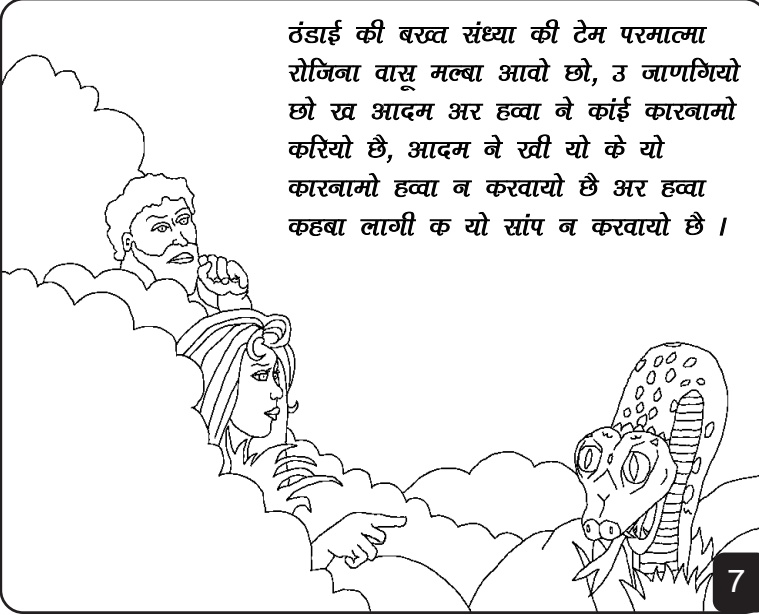 ठंडाई की बख्त संध्या की टेम परमात्मा
रोजिना वासू मल्बा आवो छो, उ जाणगियो
छो ख आदम अर हव्वा ने कांई कारनामो
करियो छै, आदम ने खी यो के यो
कारनामो हव्वा न करवायो छै अर हव्वा
कहबा लागी क यो सांप न करवायो छै ।
7